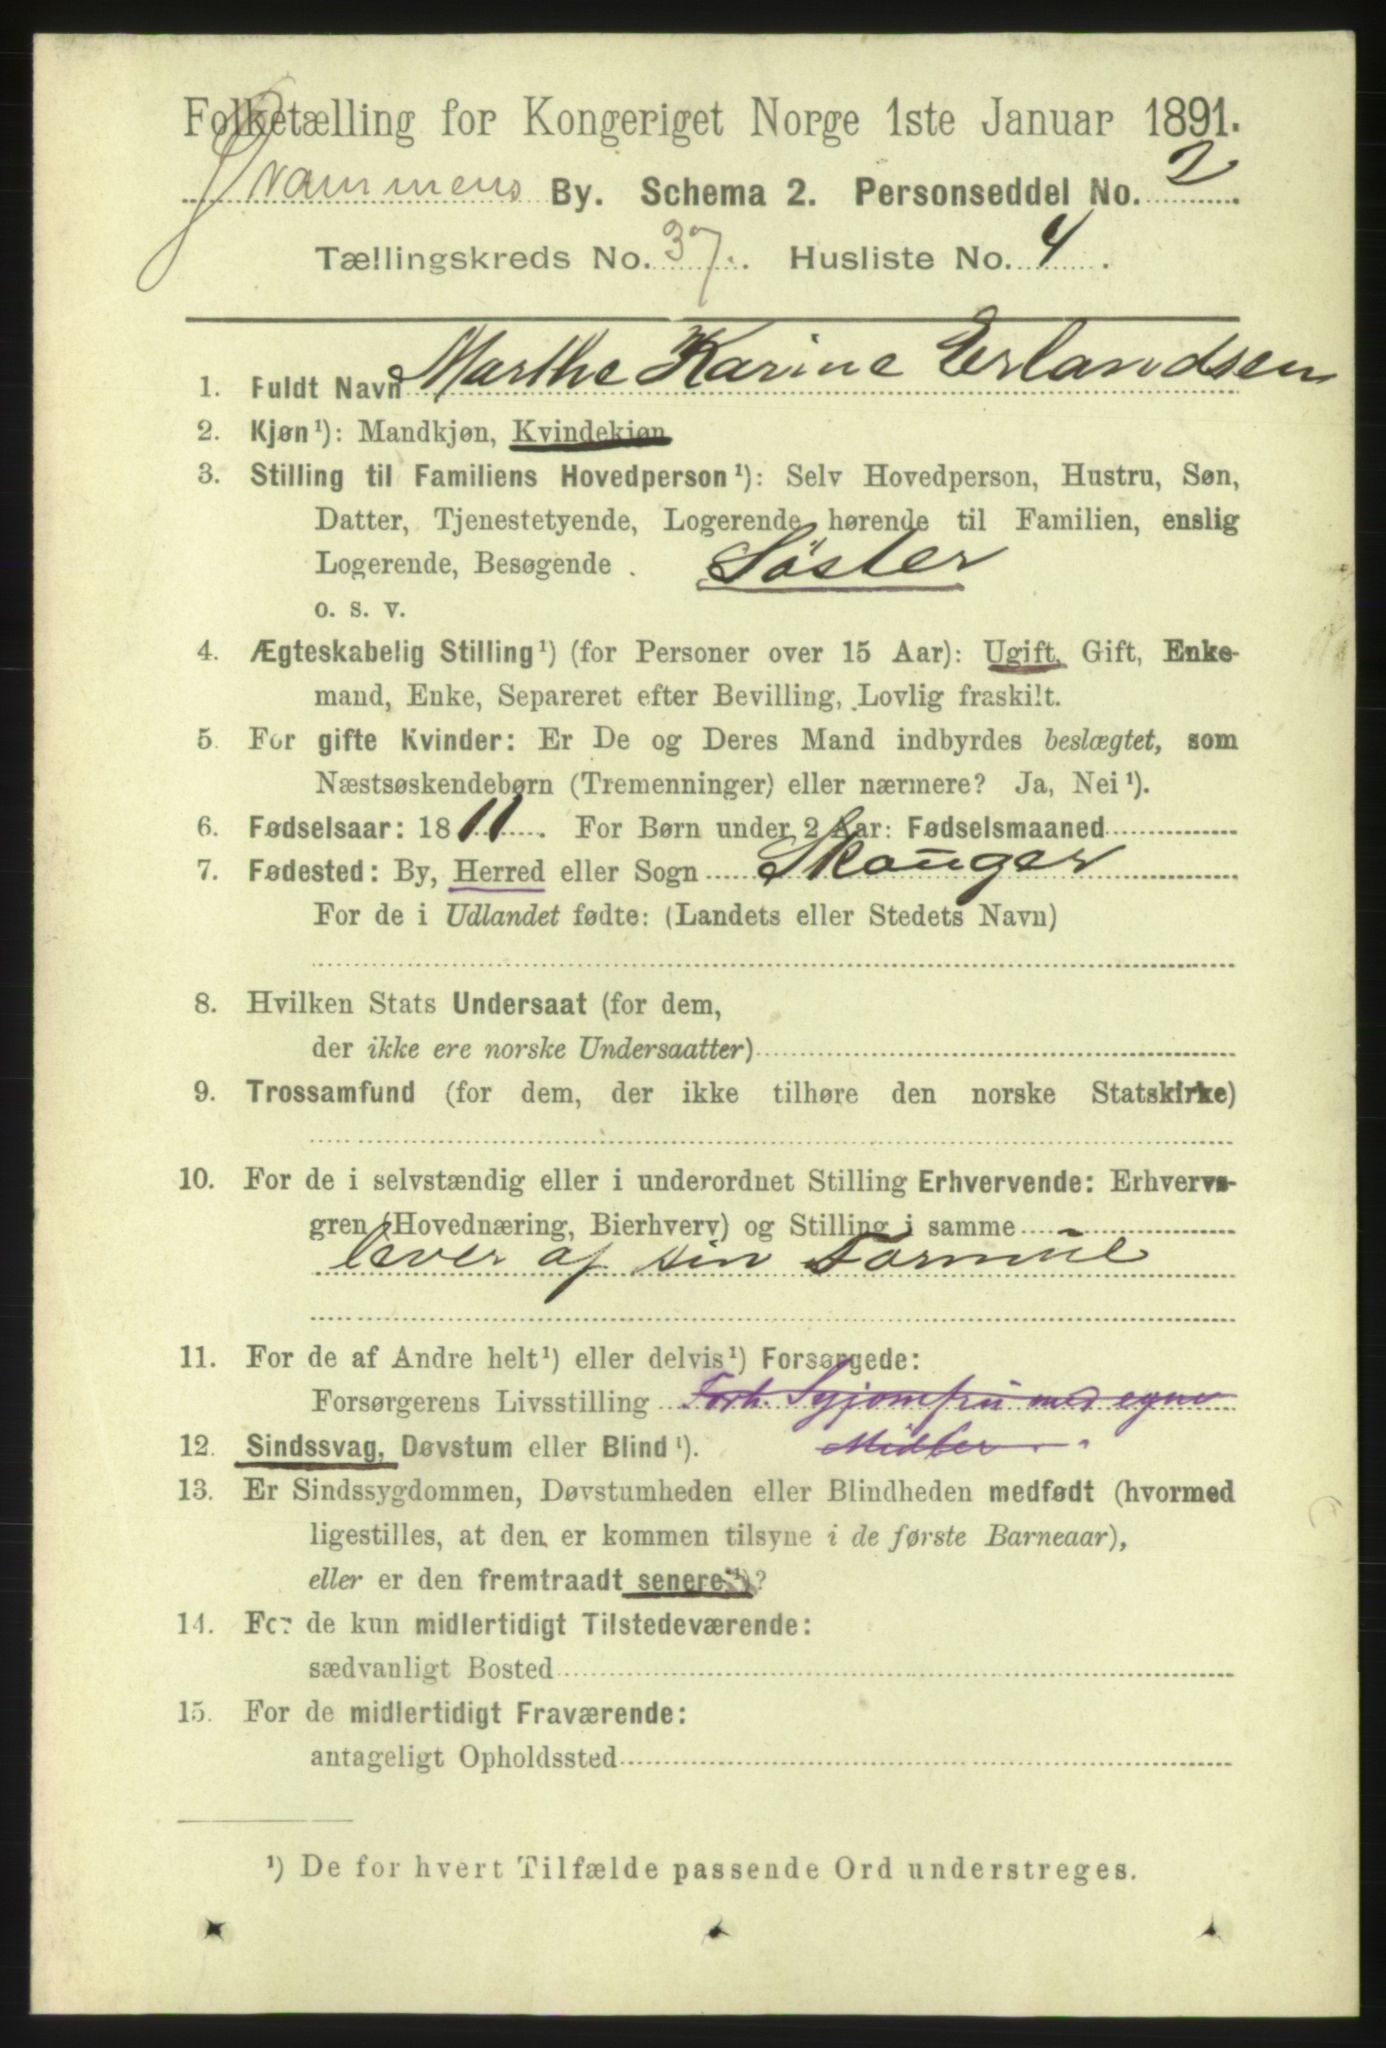 Folketælling for Kongeriget Norge 1ste Januar 1891.
Drammens By. Schema 2. Personseddel No. 2
Tællingskreds No. 37. Husliste No. 4.
1. Fuldt Navn Marthe Karine Erlandsen
2. Kjøn¹): Mandkjøn, Kvindekjøn
3. Stilling til Familiens Hovedperson¹): Selv Hovedperson, Hustru, Søn,
Datter, Tjenestetyende, Logerende hørende til Familien, enslig
Logerende, Besøgende . Søster
o. s. v.
4. Ægteskabelig Stilling¹) (for Personer over 15 Aar): Ugift, Gift, Enke-
mand, Enke, Separeret efter Bevilling, Lovlig fraskilt.
5. For gifte Kvinder: Er De og Deres Mand indbyrdes beslægtet, som
Næstsøskendebørn (Tremenninger) eller nærmere? Ja, Nei¹).
6. Fødselsaar: 1811. For Børn under 2 Aar: Fødselsmaaned
7. Fødested: By, Herred eller Sogn Skouger
For de i Udlandet fødte: (Landets eller Stedets Navn)
8. Hvilken Stats Undersaat (for dem,
der ikke ere norske Undersaatter)
9. Trossamfund (for dem, der ikke tilhøre den norske Statskirke)
10. For de i selvstændig eller i underordnet Stilling Erhvervende: Erhvervs-
gren (Hovednæring, Bierhverv) og Stilling i samme
lever af sin Formue
11. For de af Andre helt¹) eller delvis¹) Forsørgede:
Forsørgerens Livsstilling Forh. Syjomfru med egne
Midler
12. Sindssvag, Døvstum eller Blind¹).
13. Er Sindssygdommen, Døvstumheden eller Blindheden medfødt (hvormed
ligestilles, at den er kommen tilsyne i de første Barneaar),
eller er den fremtraadt senere¹)?
14. For de kun midlertidigt Tilstedeværende:
sædvanligt Bosted
15. For de midlertidigt Fraværende:
antageligt Opholdssted
¹) De for hvert Tilfælde passende Ord understreges.